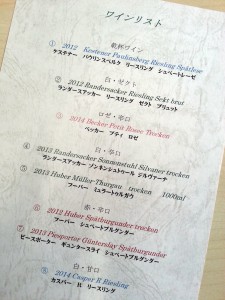 ワインリスト
乾杯ワイン
① 2012 Kestener Paulinsberg Riesling Spätlese
ケステナー パウリンスベルク リースリング シュペートレーゼ
白・ゼクト
② 2012 Randersacker Riesling Sekt brut
ランダースアッカー リースリング ゼクト ブリュット
ロゼ・辛口
③ 2014 Becker Petit Rosee Trocken
ベッカー プティ ロゼ
白・辛口
④ 2013 Randersacker Sonnenstuhl Silvaner trocken
ランダースアッカー ゾンネンシュトゥール ジルヴァーナ
⑤ 2013 Huber Müller Thurgau trocken 1000ml
フーバー ミュラートゥルガウ
赤・辛口
⑥ 2012 Huber Spätburgunder trocken
フーバー シュペートブルグンダー
⑦ 2013 Piesporter Günterslay Spätburgunder
ピースポーター ギュンタースライ シュペートブルグンダー
白・甘口
⑧ 2014 Caspar R Riesling
カスパー R リースリング